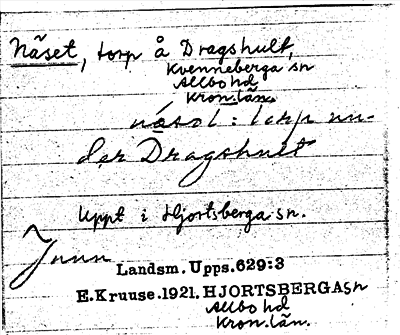 Näset, torp å Dragshult,
Kvenneberga sn
Allbo hd
Kron. län.
näsət : torp un-
der Dragshult
Uppt i Hjortsberga sn.
Landsm. Upps. 629:3
E. Kruuse. 1921. HJORTSBERGA sn
Allbo hd
Kron. län.